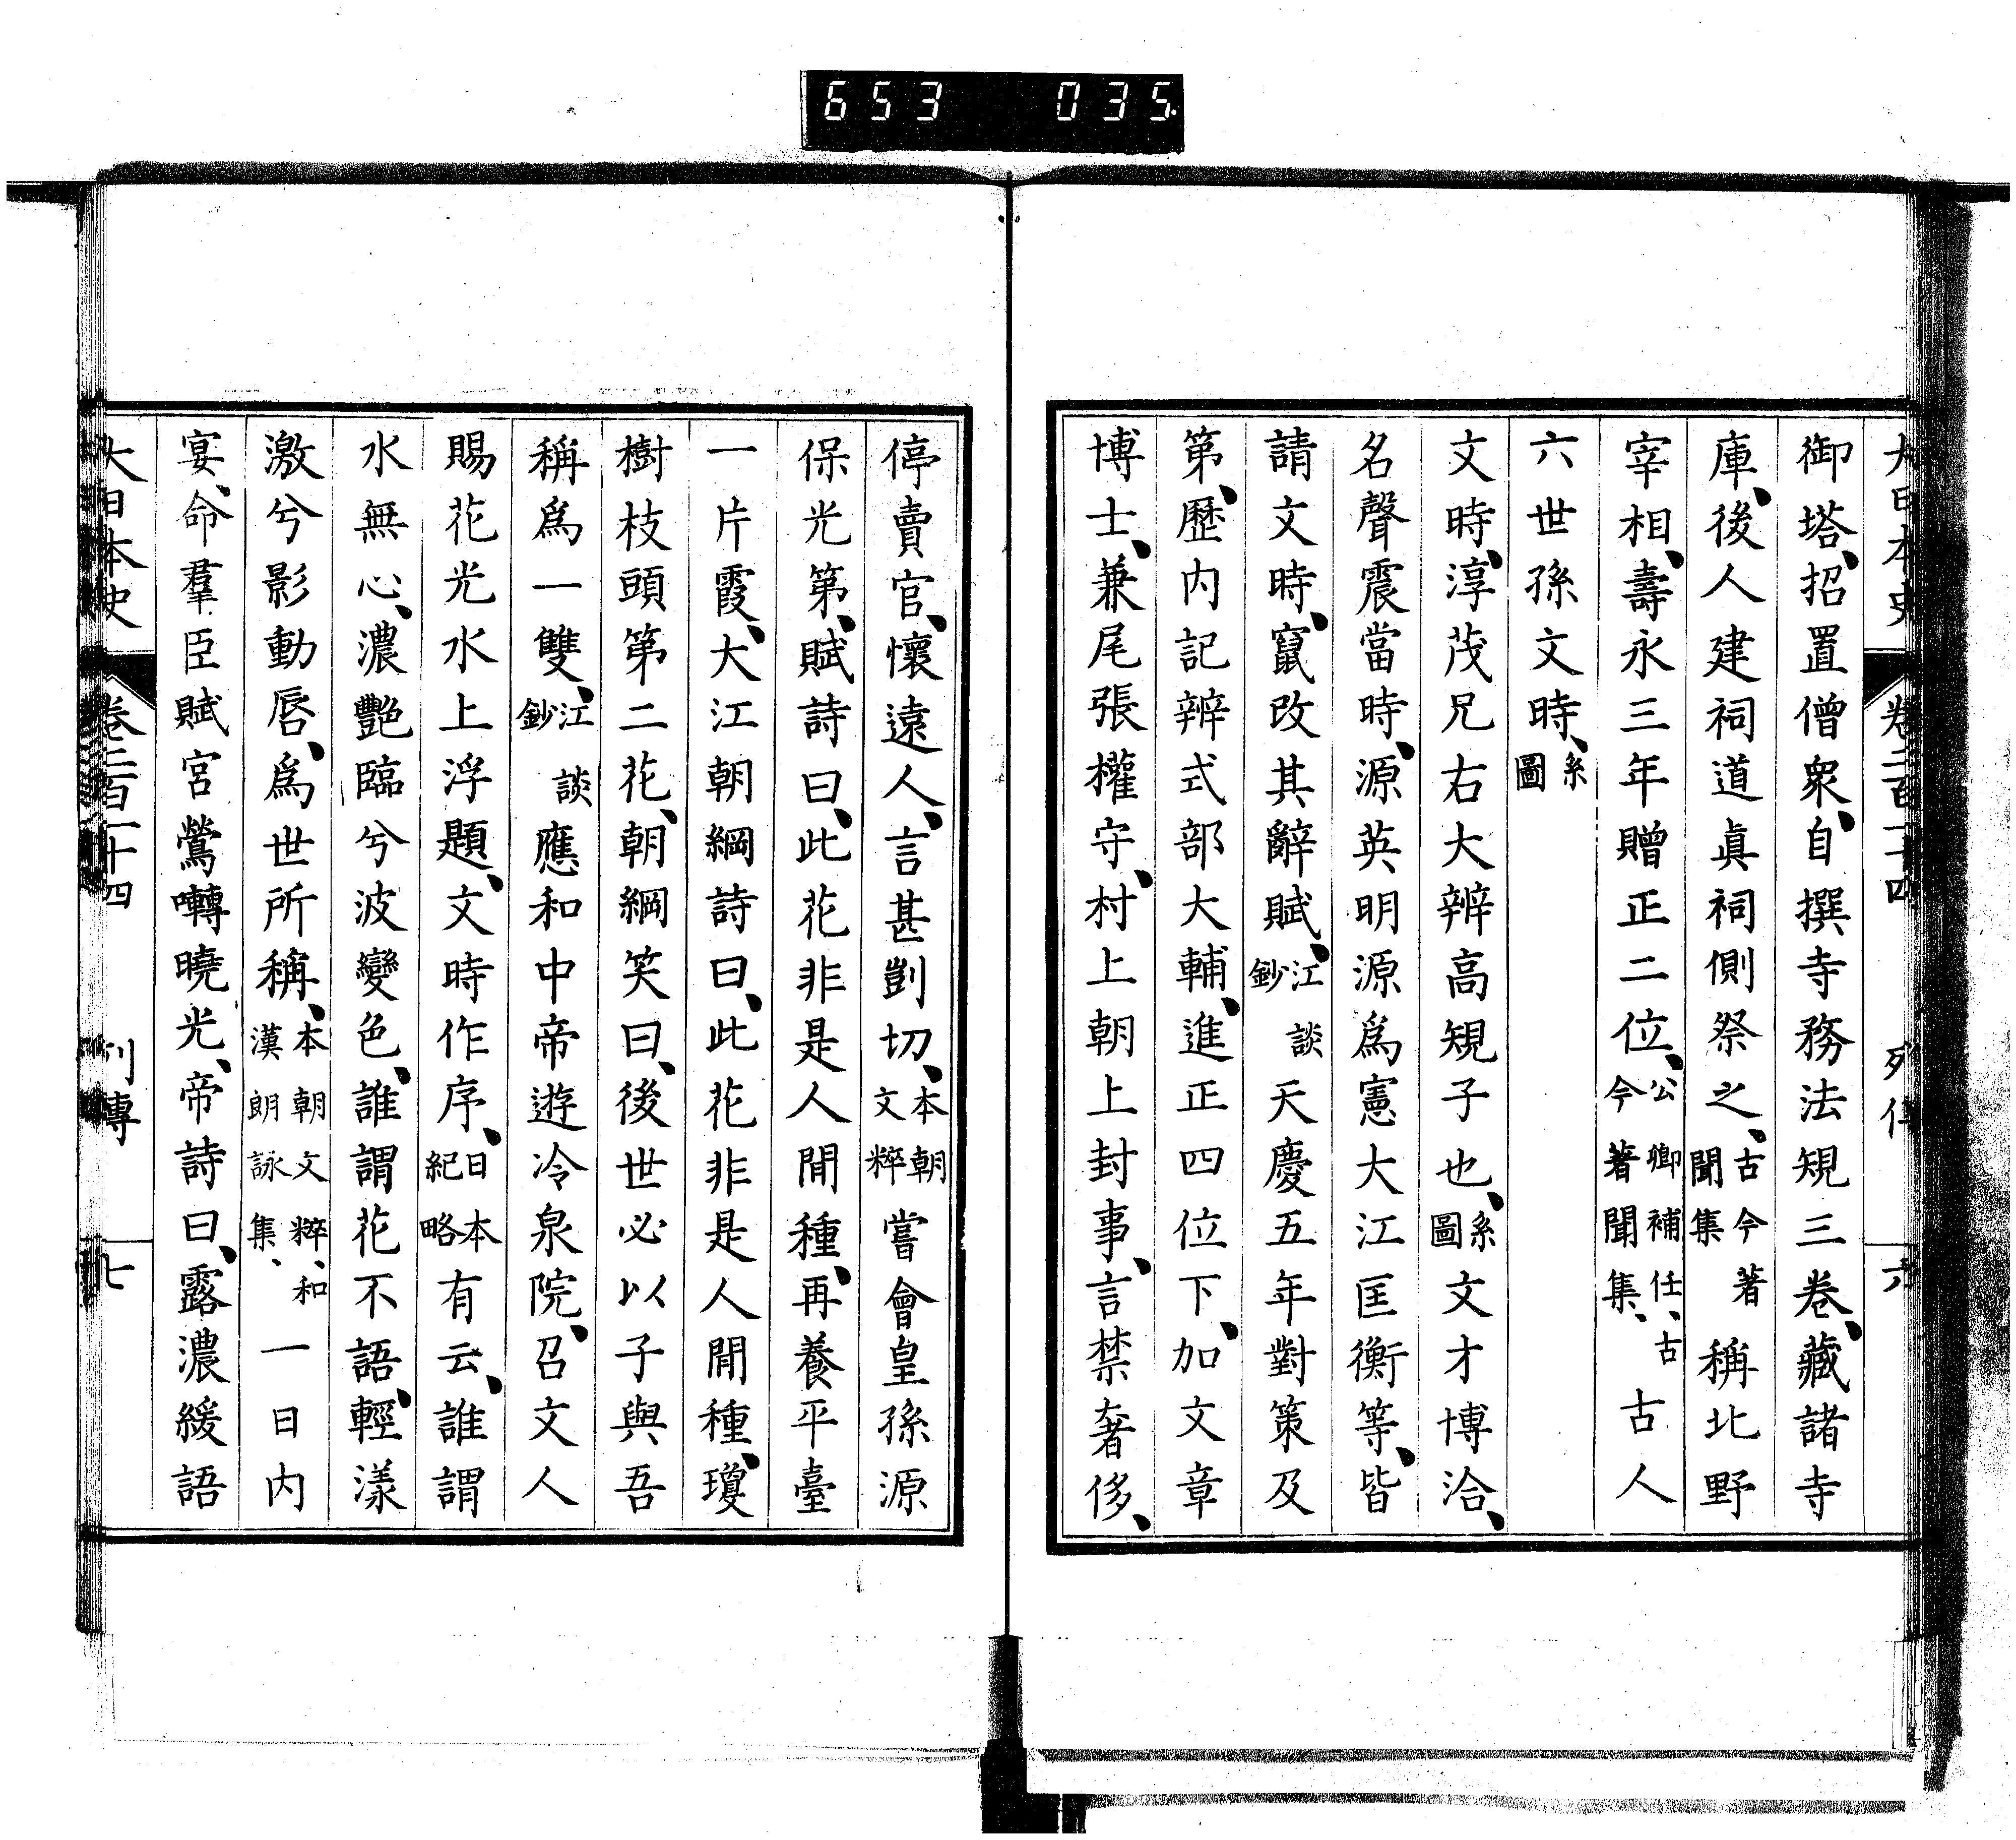 653 035
大日本史 卷二百一十四 列傳 六
御塔、招置僧衆、自撰寺務法規三卷、藏諸寺
庫、後人建祠道眞祠側祭之、古今著聞集稱北野
宰相、壽永三年贈正二位、公卿補任、古今著聞集、古人
六世孫文時、系圖
文時、淳茂兄右大辨高規子也、系圖文才博洽、
名聲震當時、源英明源爲憲大江匡衡等、皆
請文時、竄改其辭賦、江談鈔天慶五年對策及
第、歷内記辨式部大輔、進正四位下、加文章
博士、兼尾張權守、村上朝上封事、言禁奢侈、
停賣官、懷遠人、言甚剴切、本朝文粹嘗會皇孫源
保光第、賦詩曰、此花非是人閒種、再養平臺
一片霞、大江朝綱詩曰、此花非是人閒種、瓊
樹枝頭第二花、朝綱笑曰、後世必以子與吾
稱爲一雙、江談鈔應和中帝遊冷泉院、召文人
賜花光水上浮題、文時作序、日本紀略有云、誰謂
水無心、濃艷臨兮波變色、誰謂花不語、輕漾
激兮影動唇、爲世所稱、本朝文粹、和漢朗詠集、一日内
宴、命羣臣賦宮鶯囀曉光、帝詩曰、露濃緩語
大日本史 卷二百一十四 列傳 七